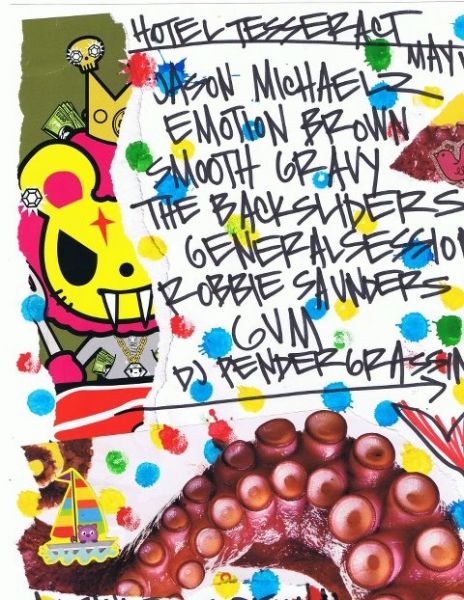 HOTEL TESSERACT
MAY
JASON MICHAELZ
EMOTION BROWN
SMOOTH GRAVY
THE BACKSLIDERS
GENERALSESSIO
ROBBIE SAUNDERS
GVM
DJ PENDERGRASSIN